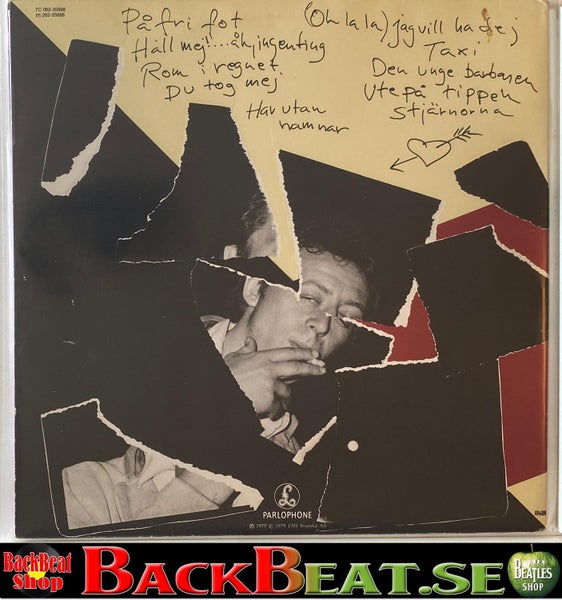 7C 062-35688
(M) 262-35688
På fri fot
Håll mej!...åh, ingenting
Rom i regnet
Du tog mej
Här utan
hamnar
(Oh la la) Jag vill ha dej
Taxi
Den unge barbaren
Ute på tippen
Stjärnorna
PARLOPHONE
℗ 1979 © 1979 EMI Svenska AB
BackBeat
Shop
BACKBEAT.SE
BEATLES
SHOP